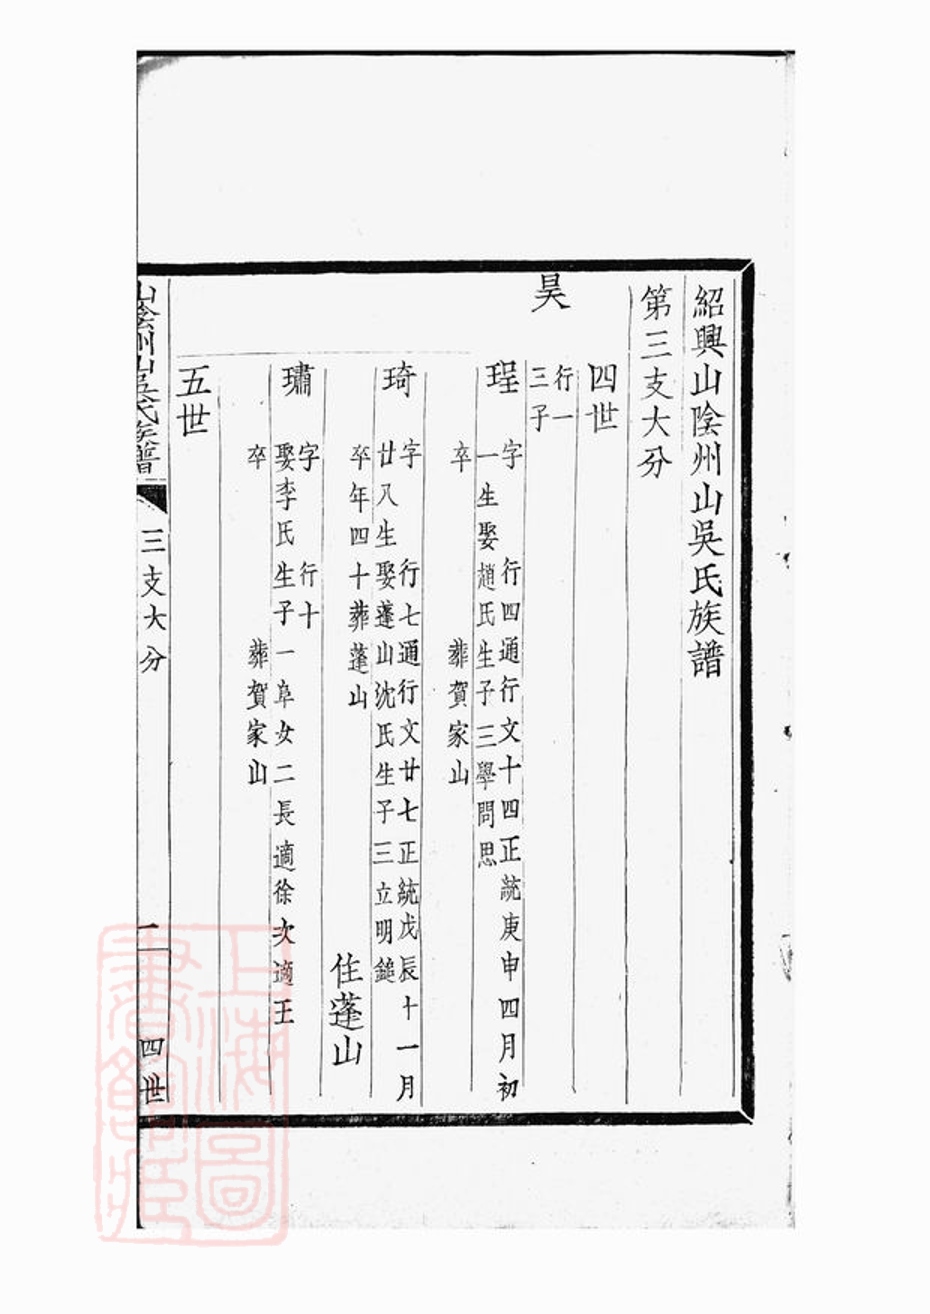 紹興山陰州山吳氏族譜
第三支大分
四世
昊
行一
三子
珵
字 行四通行文十四正統庚申四月初
一生娶趙氏生子三學問思
卒 葬賀家山
琦
字 行七通行文廿七正統戊辰十一月
廿八生娶蓬山沈氏生子三立明鎚
卒年四十葬蓬山
住蓬山
璛
字 行十
娶李氏生子一阜女二長適徐次適王
卒 葬賀家山
五世
山陰州山吳氏族譜
三支大分
一
四世
上海圖
書館藏